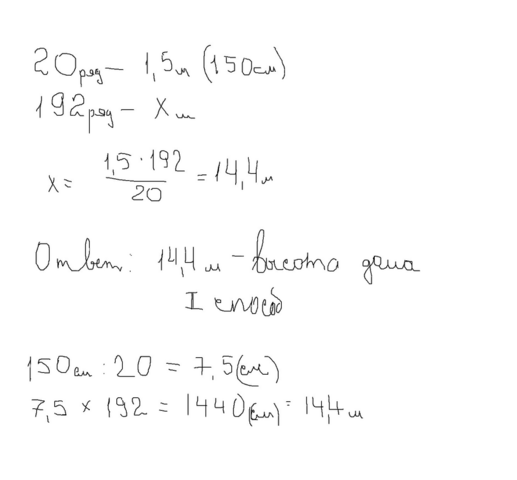 20ряд — 1,5м (150см)
192ряд — х м
х = 1,5 · 192 / 20 = 14,4м
Ответ: 14,4 м — высота дома
I способ
150см : 20 = 7,5(см)
7,5 × 192 = 1440(см) = 14,4 м